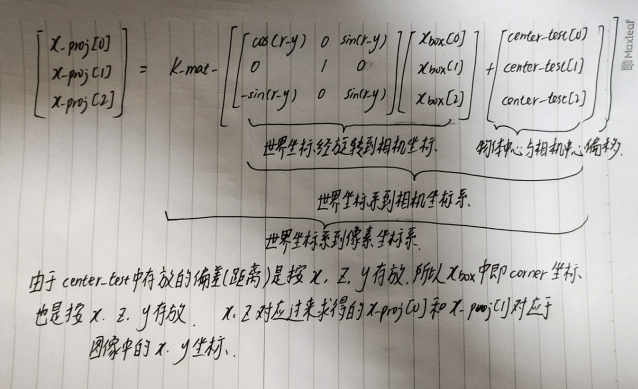 [x-proj[0] x-proj[1] x-proj[2]] = K-mat- [[cos(r-y) 0 sin(r-y) 0 1 0 -sin(r-y) 0 sin(r-y)] [xbox[0] xbox[1] xbox[2]] + [center-test[0] center-test[1] center-test[2]]]
世界坐标经旋转到相机坐标. 物体中心与相机中心偏移.
世界坐标系到相机坐标系.
世界坐标系到像素坐标系.
由于center-test中存放的偏差(距离)是按x, z, y存放,所以xbox中即corner坐标、
也是按x、z、y存放. x, z对应过来求得的x-proj[0]和x-proj[1]对应于
图像中的x. y坐标.
Maxleaf